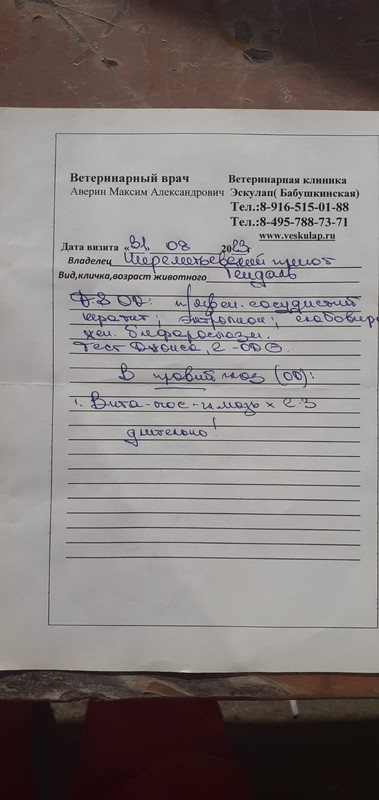 Ветеринарный врач
Аверин Максим Александрович
Ветеринарная клиника
Эскулап( Бабушкинская)
Тел.:8-916-515-01-88
Тел.:8-495-788-73-71
www.veskulap.ru
Дата визита «31» 08 2023
Владелец Шереметьевский приют
Вид,кличка,возраст животного Гендаль
DS OD: сосудистый
кератит; энтропион; слабовыр
блефароспазм.
Тест Джонса 2 - OD
В правый глаз (OD):
1. Вита-пос - мазь х 2-3
длительно!